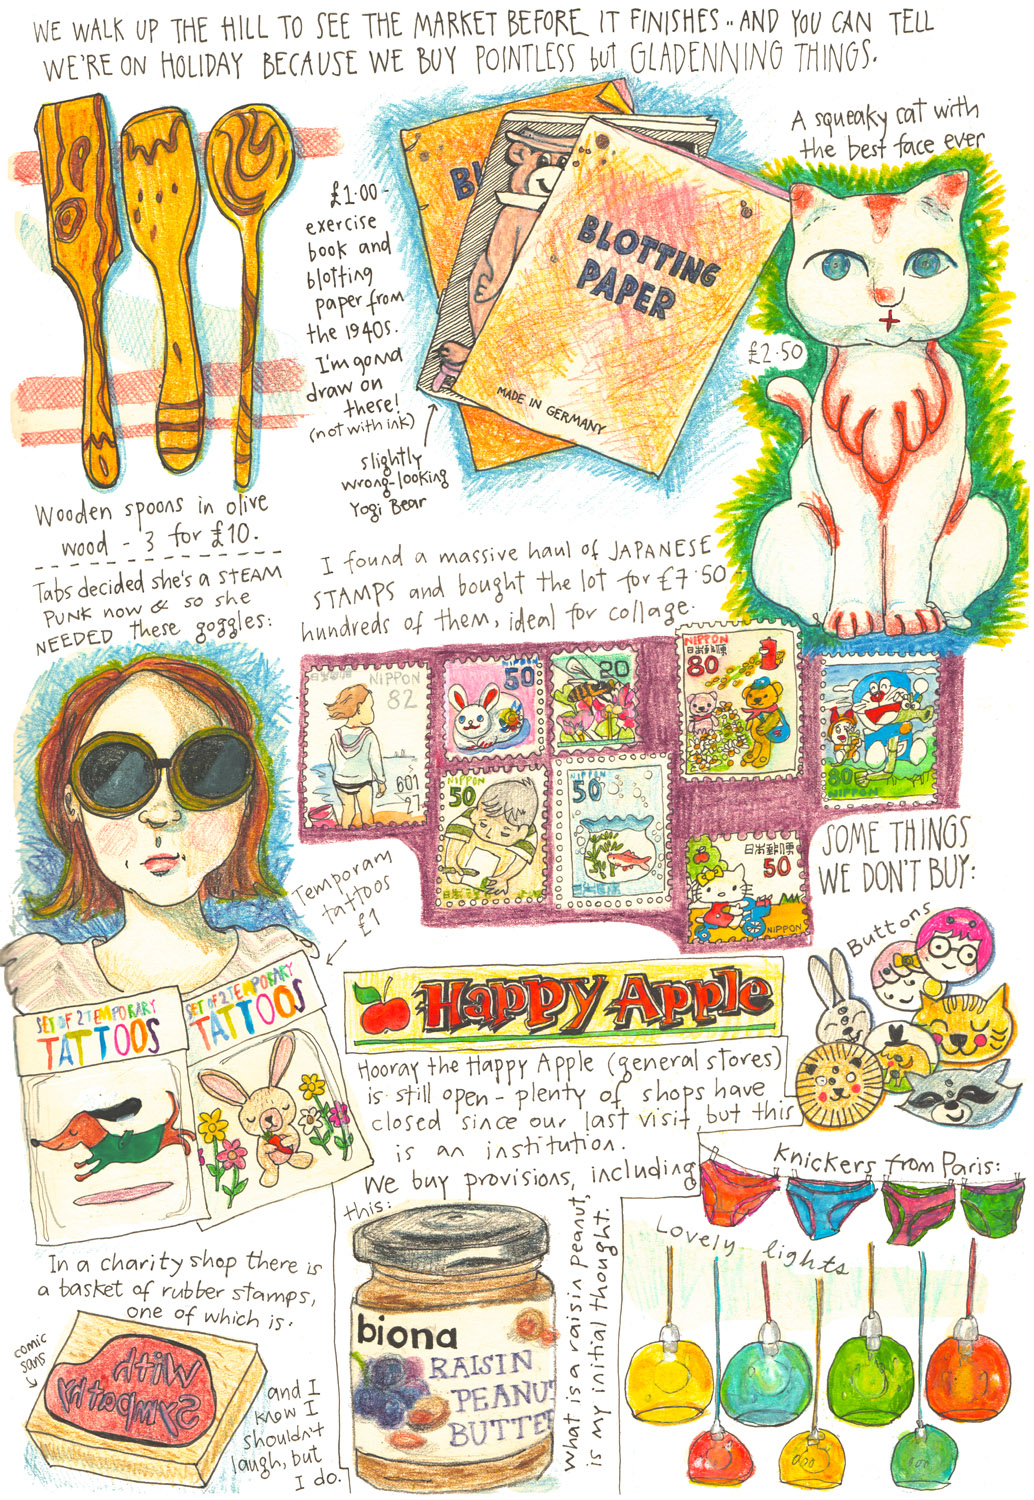 WE WALK UP THE HILL TO SEE THE MARKET BEFORE IT FINISHES .. AND YOU CAN TELL
WE'RE ON HOLIDAY BECAUSE WE BUY POINTLESS but GLADENNING THINGS.
A squeaky cat with
the best face ever
£2.50
£1.00 -
exercise
book and
blotting
paper from
the 1940s.
I'm gonna
draw on
these!
(not with ink)
slightly
wrong-looking
Yogi Bear
BLOTTING
PAPER
MADE IN GERMANY
Wooden spoons in olive
wood - 3 for £10.
Tabs decided she's a STEAM
PUNK now & so she
NEEDED these goggles:
I found a massive haul of JAPANESE
STAMPS and bought the lot for £7.50 -
hundreds of them, ideal for collage.
日本郵便 NIPPON
82
601
27
NIPPON
50
20
NIPPON
日本郵便
80
80
NIPPON
NIPPON
50
NIPPON
50
日本郵便
50
NIPPON
Temporary
tattoos
£1
SET OF 2 TEMPORARY
TATTOOS
SET OF 2 TEMPORARY
TATTOOS
SOME THINGS
WE DON'T BUY:
Buttons
Happy Apple
Hooray the Happy Apple (general stores)
is still open - plenty of shops have
closed since our last visit, but this
is an institution.
We buy provisions, including
this:
biona
RAISIN
PEANUT
BUTTE
what is a raisin peanut,
is my initial thought.
Knickers from Paris:
Lovely lights
In a charity shop there is
a basket of rubber stamps,
one of which is.
comic
sans
With
Sympathy
and I
know I
shouldn't
laugh, but
I do.